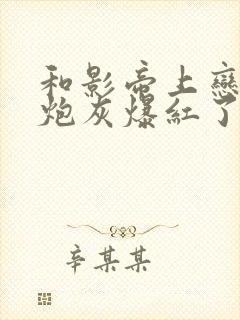 和影帝上戀
炮灰爆紅了
辛某某